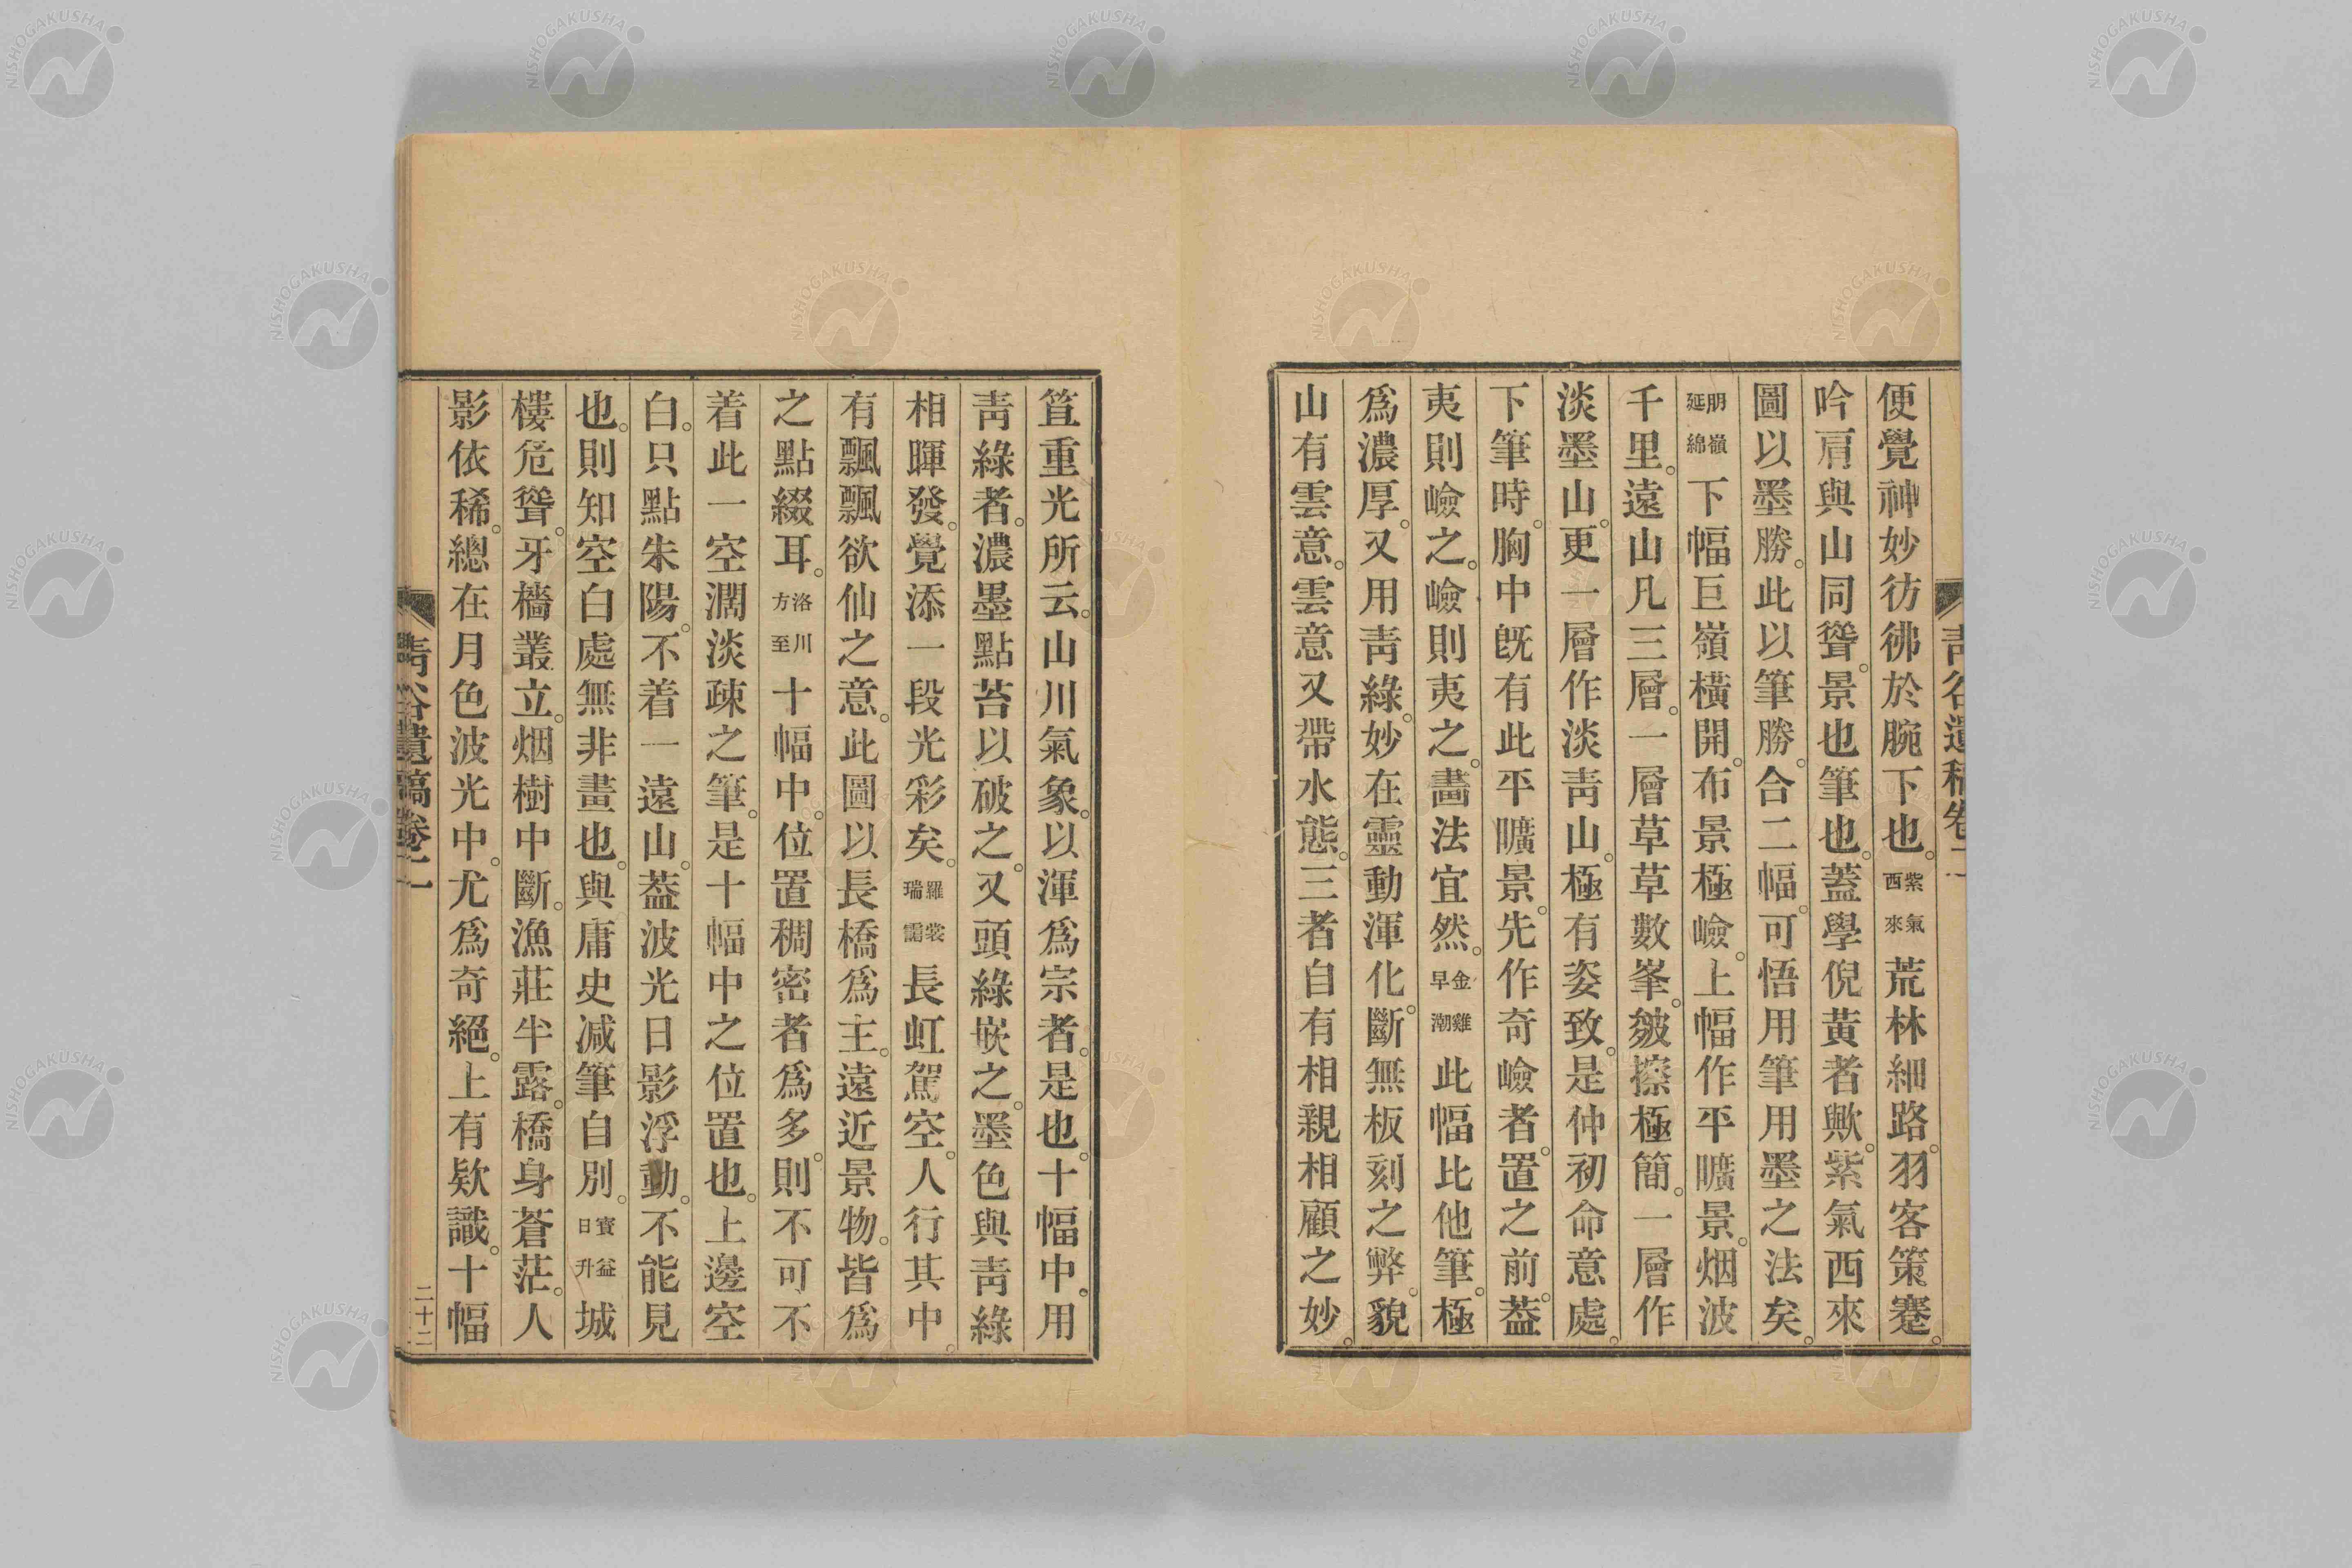 便覺神妙彷彿於腕下也。紫氣西來荒林細路。羽客策蹇。
吟肩與山同聳。景也筆也。蓋學倪黃者歟。紫氣西來
圖以墨勝。此以筆勝。合二幅。可悟用筆用墨之法矣。
朋嶺延綿下幅巨嶺橫開。布景極嶮。上幅作平曠景。烟波
千里。遠山凡三層。一層草草數峯。皴擦極簡。一層作
淡墨山。更一層作淡靑山。極有姿致。是仲初命意處。
下筆時。胸中旣有此平曠景。先作奇嶮者。置之前。葢
夷則嶮之。嶮則夷之。畵法宜然。金雞早潮此幅比他筆。極
爲濃厚。又用靑綠。妙在靈動渾化。斷無板刻之弊。貌
山有雲意。雲意又帶水態。三者自有相親相顧之妙。
靑谷遺稿卷二
笪重光所云。山川氣象。以渾爲宗者。是也。十幅中。用
靑綠者。濃墨點苔以破之。又頭綠嵌之。墨色與靑綠
相暉發。覺添一段光彩矣。羅裳瑞靄長虹駕空。人行其中。
有飄飄欲仙之意。此圖以長橋爲主。遠近景物。皆爲
之點綴耳。洛川方至十幅中。位置稠密者爲多。則不可不
着此一空濶淡疎之筆。是十幅中之位置也。上邊空
白。只點朱陽。不着一遠山。葢波光日影浮動。不能見
也。則知空白處無非畫也。與庸史减筆自別。寶益日升城
樓危聳。牙檣叢立。烟樹中斷。漁莊半露。橋身蒼茫。人
影依稀。總在月色波光中。尤爲奇絕。上有欵識。十幅
靑谷遺稿卷二
二十二
NISHOGAKUSHA